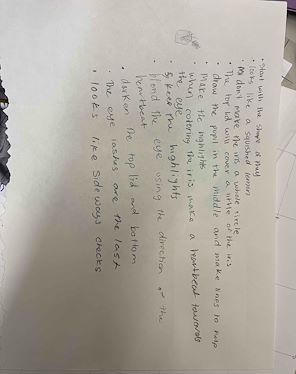 • Start with the shape of the eye
looks like a squished lemon
• Md don't make the iris a whole circle
• The top lid will cover a little of the iris
• draw the pupil in the middle and make lines to help
• Make the highlights
when covering the iris make a heartbeat towards
the eye
• Keep the highlights
• blend the eye using the direction of the
heartbeat
• darken the top lid and bottom
• The eye lashes are the last
• looks like sideways checks